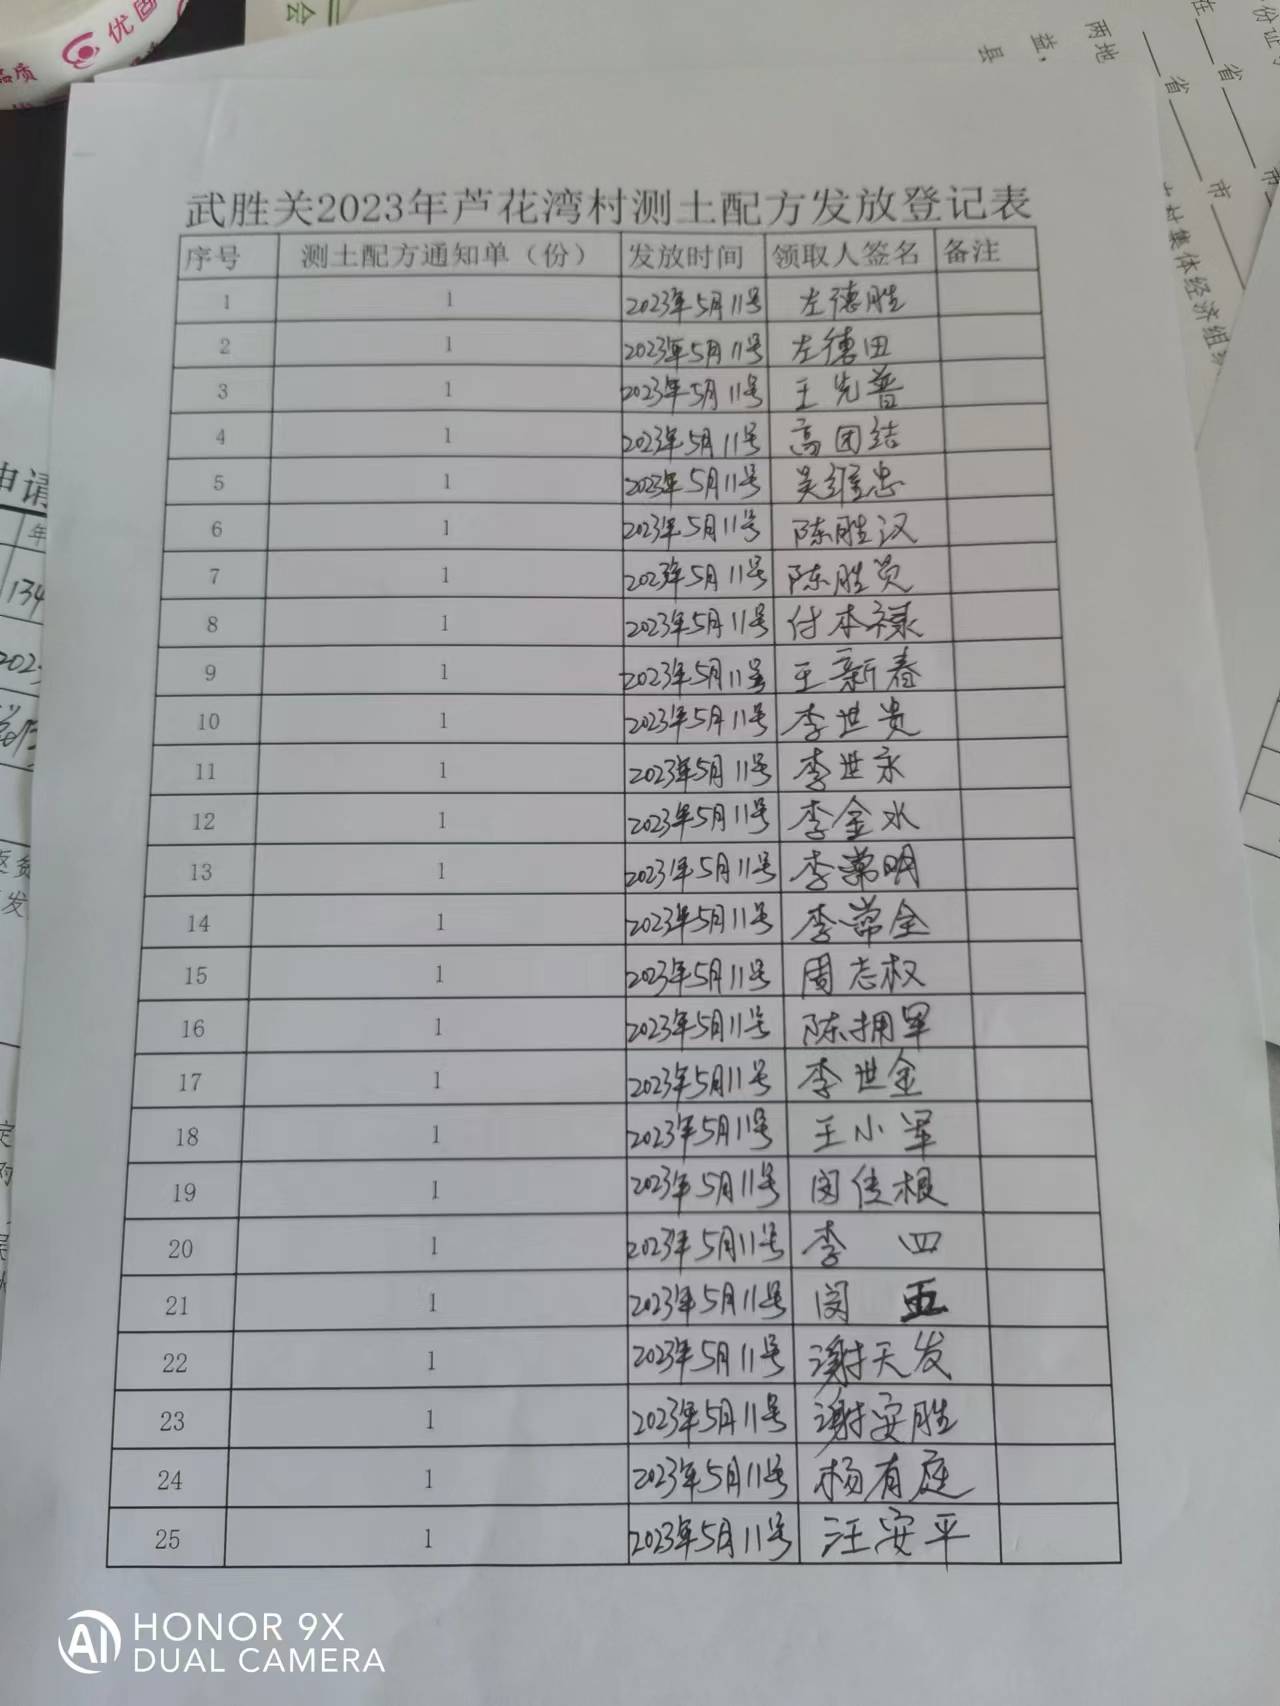 武胜关2023年芦花湾村测土配方发放登记表
序号 测土配方通知单（份） 发放时间 领取人签名 备注
1 1 2023年5月11号 左德胜
2 1 2023年5月11号 左德田
3 1 2023年5月11号 王先普
4 1 2023年5月11号 高团结
5 1 2023年5月11号 吴维忠
6 1 2023年5月11号 陈胜汉
7 1 2023年5月11号 陈胜员
8 1 2023年5月11号 付本禄
9 1 2023年5月11号 王新春
10 1 2023年5月11号 李世贵
11 1 2023年5月11号 李世永
12 1 2023年5月11号 李金水
13 1 2023年5月11号 李常明
14 1 2023年5月11号 李常全
15 1 2023年5月11号 周志权
16 1 2023年5月11号 陈拥军
17 1 2023年5月11号 李世金
18 1 2023年5月11号 王小军
19 1 2023年5月11号 闵传根
20 1 2023年5月11号 李四
21 1 2023年5月11号 闵五
22 1 2023年5月11号 谢天发
23 1 2023年5月11号 谢安胜
24 1 2023年5月11号 杨有庭
25 1 2023年5月11号 汪安平
HONOR 9X
DUAL CAMERA
AI
优固
品质
会
两地
益，
县
省 市
集体经济组
申请
年
134
发